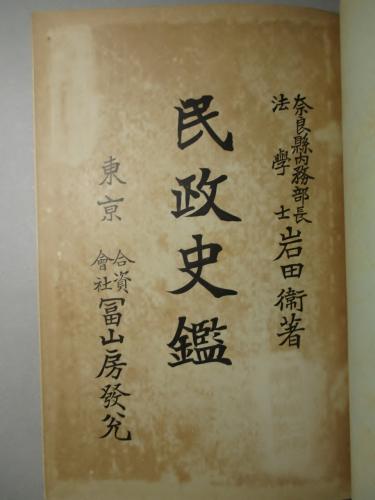 奈良縣内務部長
法學士
岩田衞著
民政史鑑
東京
合資
會社
冨山房發兌